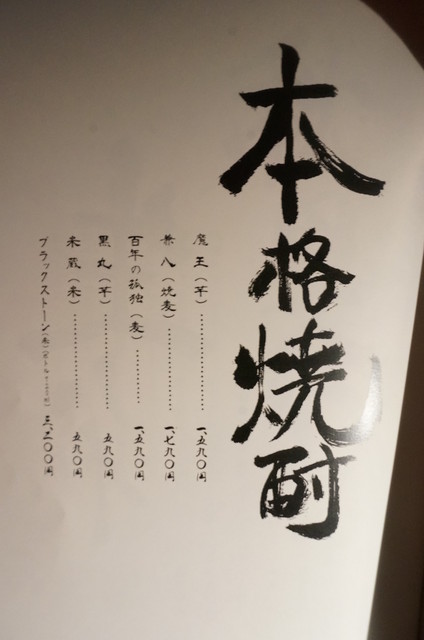 本格焼酎
魔王(芋)…………………一、五九〇円
兼八(焼麦)………………一、七九〇円
百年の孤独(麦)…………一、五九〇円
黒丸(芋)…………………五九〇円
米蔵(米)…………………五九〇円
ブラックストーン(米) 三、二〇〇円